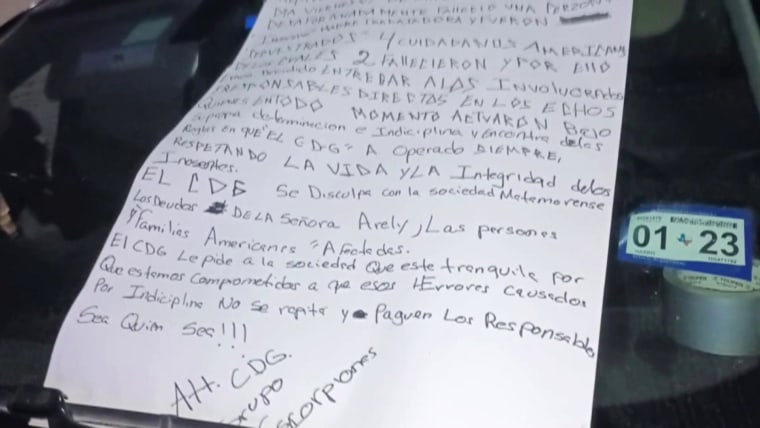 DIA VIERNES
FALLECIO UNA PERZONA
TRABAJADORA Y FUERON
4 CUIDADANOS AMERICANOS
DE LOS CUALES 2 FALLECIERON Y POR ELLO
ENTREGAR A LOS Involucrados
RESPONSABLES DIRECTOS EN LOS ECHOS
Quienes EN TODO MOMENTO ACTUARON BAJO
determinacion e Indiciplina y Encontra de las
Reglas En que "EL CDG" A Operado SIEMPRE,
RESPETANDO LA VIDA Y LA Integridad de los
Inosentes.
EL CDG Se Disculpa con la sociedad Matamorense
Los Deudos DE LA Señora Arely, Las personas
y Familias Americanes "Afectadas.
El CDG Le pide a la sociedad Que este tranquila por
Que estamos Comprometidos a que esos "Errores causados
Por Indiciplina No se repita y Paguen Los Responsable
Sea Quim Sea!!!
Att. CDG.
Grupo
Escorpiones
01 23